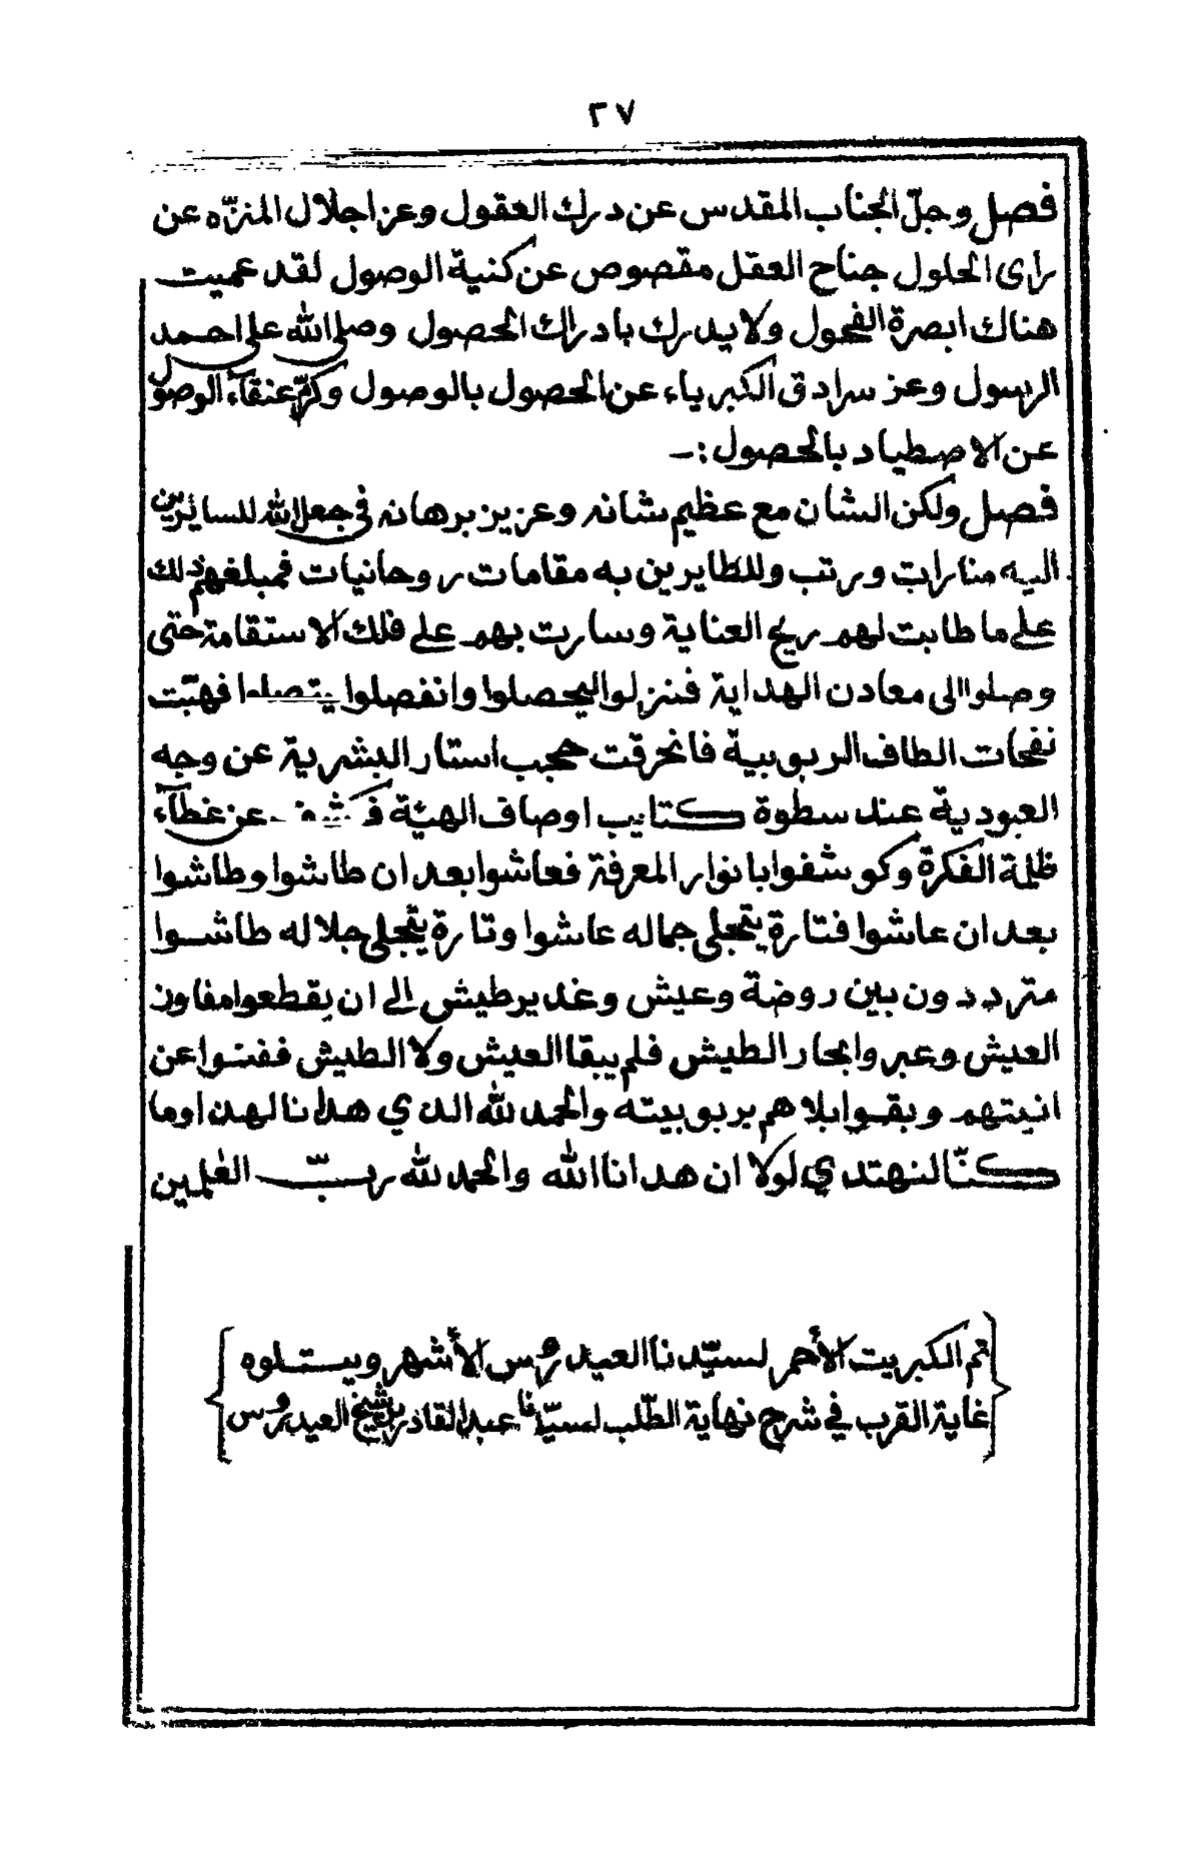 ٢٧
فصل وجلّ الجناب المقدس عن درك العقول وعز اجلال المنزّه عن
راى الحلول جناح العقل مقصوص عن كنية الوصول لقد عميت
هناك ابصرة الفحول ولا يدرك بادراك الحصول وصلى الله على احمد
الرسول وعز سرادق الكبرياء عن الحصول بالوصول وكرّم عنقآء الوصول
عن الاصطياد بالحصول :ــ
فصل ولكن الشان مع عظيم شانه وعزيز برهانه في جعل الله للسائرين
اليه منارات ورتب وللطايرين به مقامات روحانيات فمبلغهم ذلك
على ما طابت لهم ريح العناية وسارت بهم على فلك الاستقامة حتى
وصلوا الى معادن الهداية فنزلوا ليحصلوا وانفصلوا يتصلوا فهبّت
نفحات الطاف الربوبية فانخرقت حجب استار البشرية عن وجه
العبودية عند سطوة كتايب اوصاف الهيّة عن غطآء
ظلمة الفكرة وكوشفوا بانوار المعرفة فعاشوا بعد ان طاشوا وطاشوا
بعد ان عاشوا فتارة يتجلى جماله عاشوا وتارة يتجلى جلاله طاشوا
مترددون بين روضة وعيش وغدير طيش الى ان يقطعوا مفاوز
العيش وعبر وابحار الطيش فلم يبقا العيش ولا الطيش ففنوا عن
انيتهم وبقوا بلاهم بربوبيته والحمد لله الذي هدانا لهذا وما
كنّا لنهتدي لولا ان هدانا الله والحمد لله ربّ العٰلمين
{تم الكبريت الأحمر لسيّدنا العيدرُوس الأشهر ويتلوه
غاية القرب في شرح نهاية الطّلب لسيّدنا عبد القادر بن شيخ العيدرُوس}